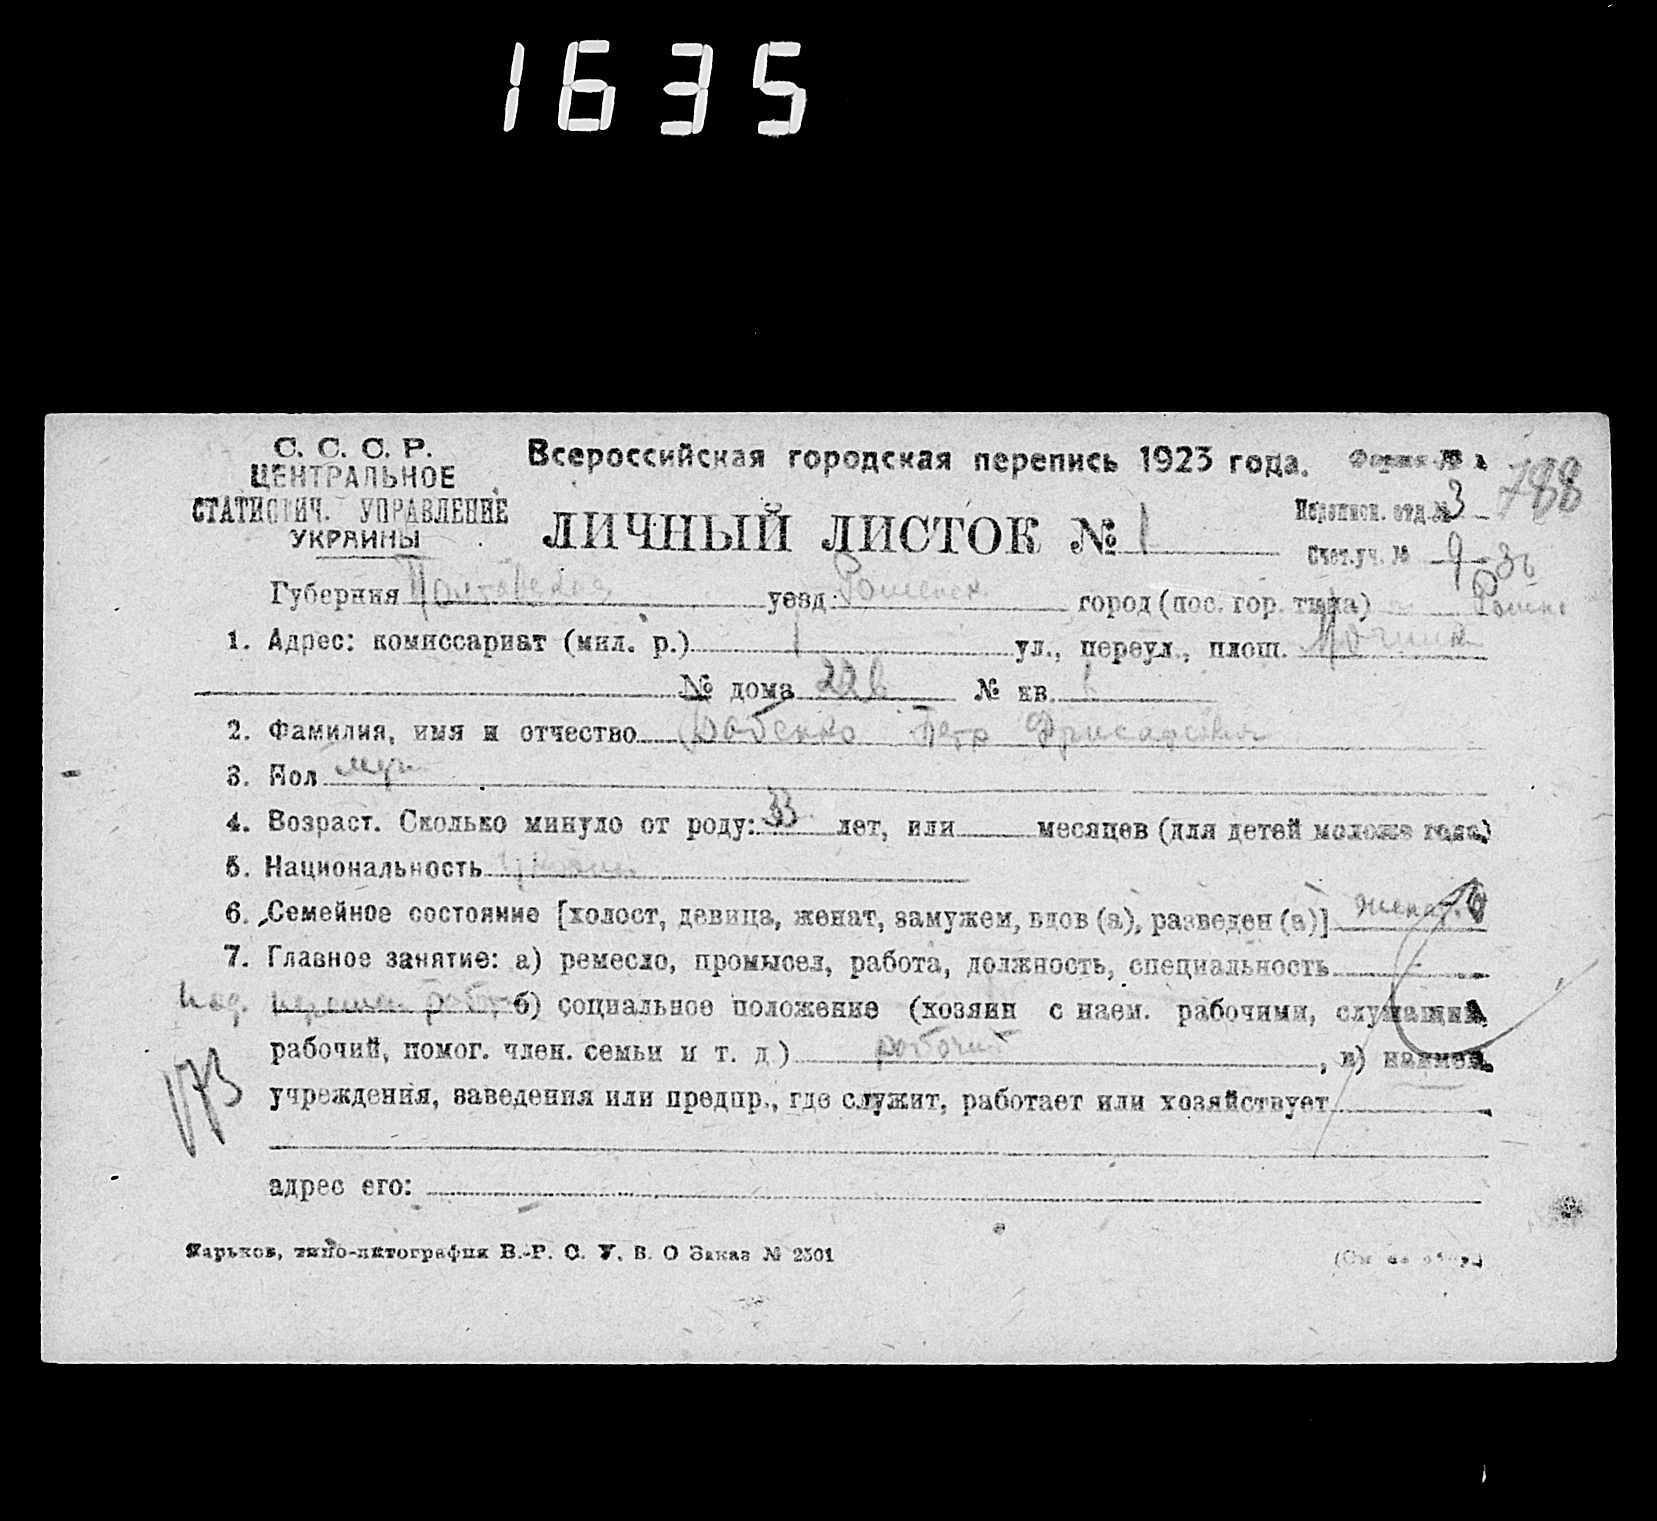 1635
С. С. С. Р.
ЦЕНТРАЛЬНОЕ
СТАТИСТИЧ. УПРАВЛЕНИЕ
УКРАИНЫ
Всероссийская городская перепись 1923 года.
Форма № 1
788
ЛИЧНЫЙ ЛИСТОК № 1
Переписн. отд. № 3
Счет. уч. № 9
Губерния Полтавская уезд Роменск город (пос. гор. типа) Ромны
1. Адрес: комиссариат (мил. р.) 1 ул., переул., площ.
№ дома 22в № кв. 1
2. Фамилия, имя и отчество Бабенко Петр
3. Пол муж
4. Возраст. Сколько минуло от роду: 33 лет, или месяцев (для детей моложе года)
5. Национальность
6. Семейное состояние [холост, девица, женат, замужем, вдов (а), разведен (а)] женат
7. Главное занятие: а) ремесло, промысел, работа, должность, специальность
б) социальное положение (хозяин с наем. рабочими, служащий,
рабочий, помог. член. семьи и т. д) рабочий, в) наимен.
173
учреждения, заведения или предпр., где служит, работает или хозяйствует
адрес его:
Харьков, типо-литография В.-Р. С. У. В. О Заказ № 2501
(См на обор.)